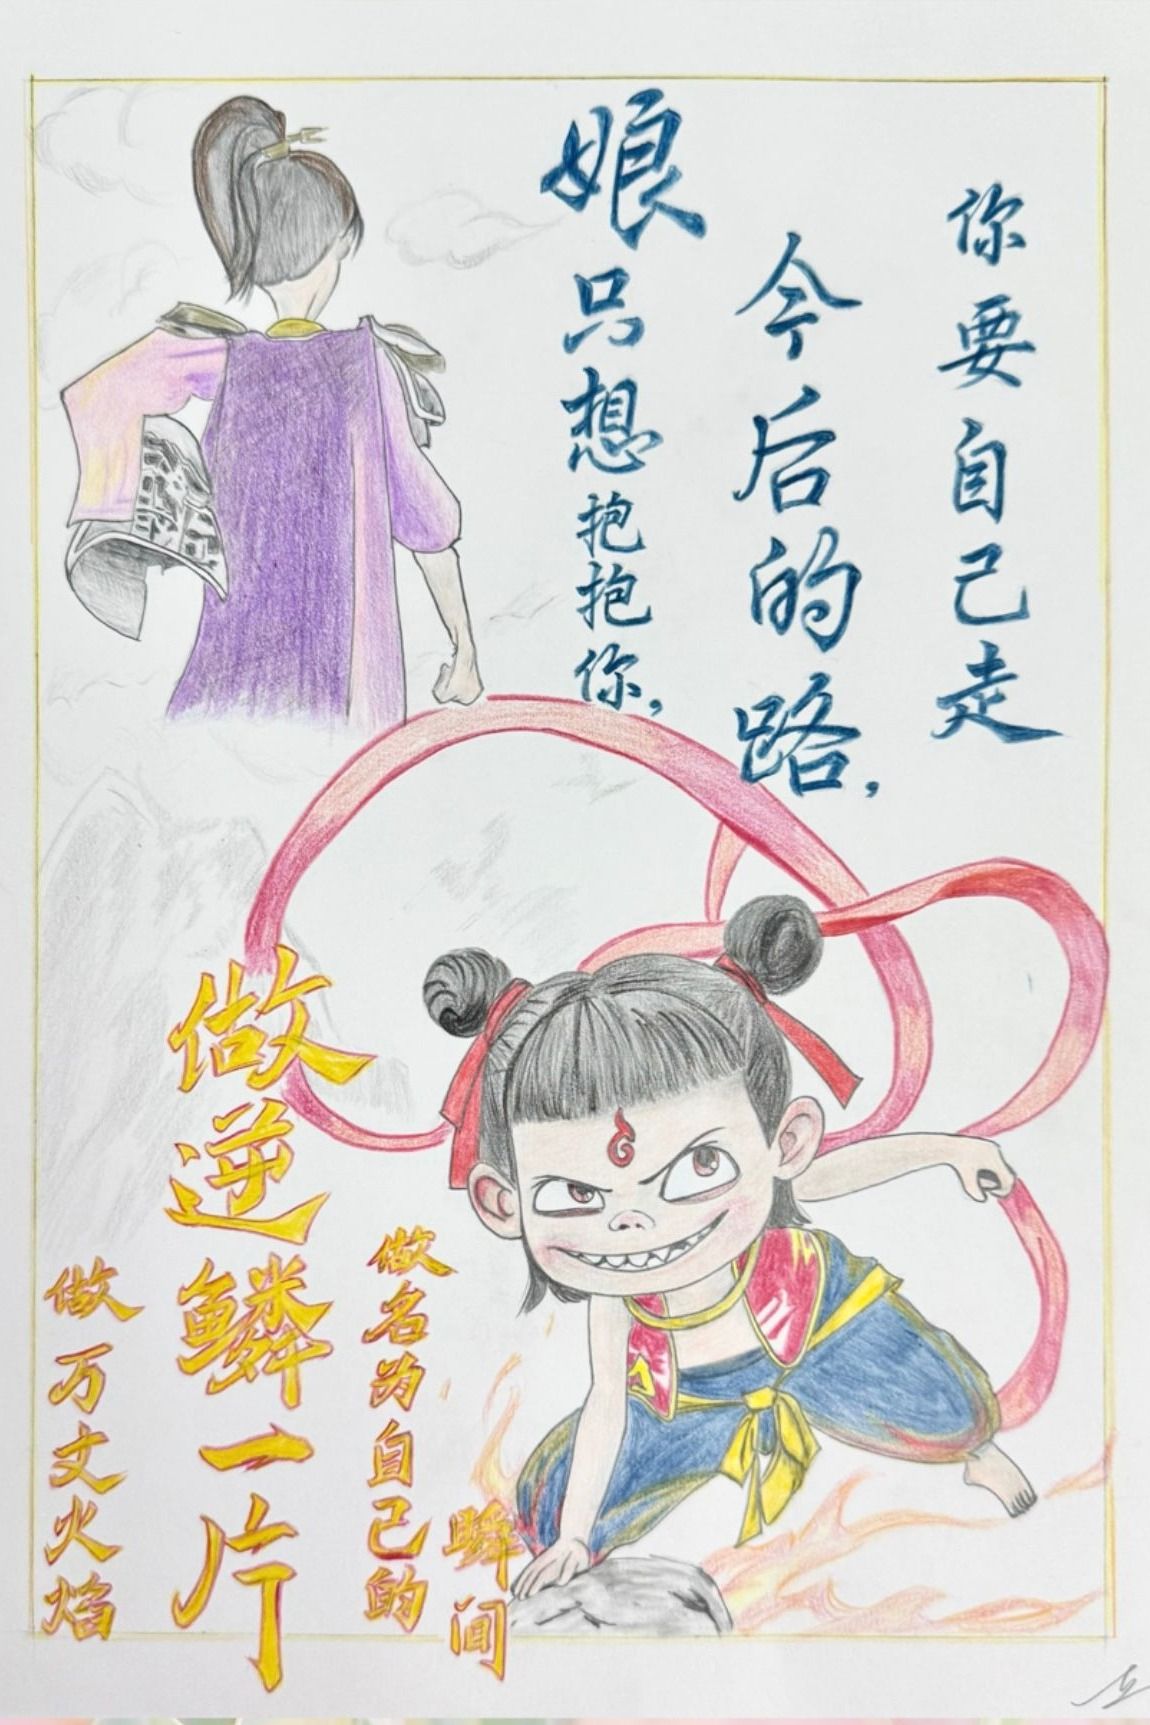 娘只想抱抱你，
今后的路，
你要自己走
做万丈火焰
做逆鳞一片
做名为自己的
瞬间